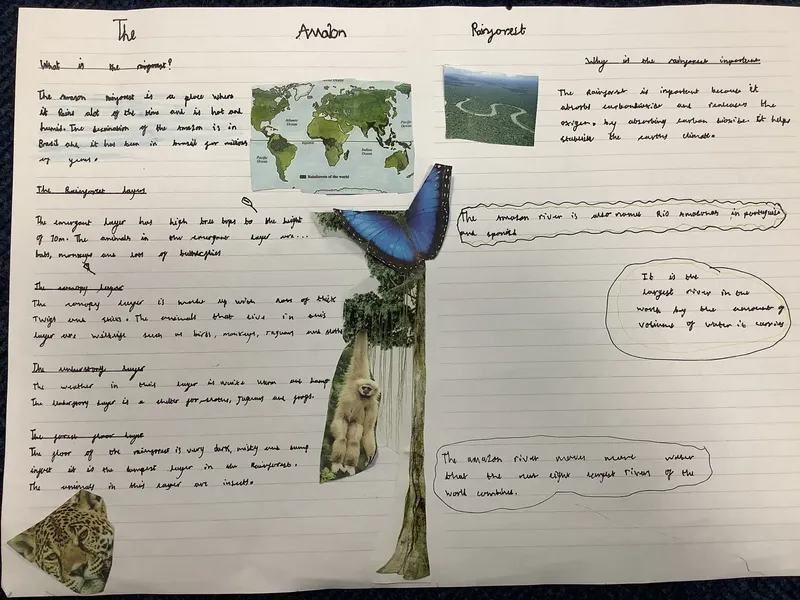 The Amazon Rainforest
What is the rainforest?
The Amazon rainforest is a place where
it Rains alot of the time and is hot and
humid. The destination of the Amazon is in
Brazil and it has been in brazil for millions
of years.
Atlantic Ocean
Pacific Ocean
Pacific Ocean
Indian Ocean
Rainforests of the world
The Rainforest layers
The emergant layer has high tree tops to the height
of 70m. The animals in the emergent layer are...
bats, monkeys and lots of butterflies
The canopy layer
The canopy layer is made up with lots of thick
Twigs and The animals that live in this
layer are wildlife such as birds, monkeys, Jaguars and sloths
The understory layer
The weather in this layer is quite warm and damp
The understory layer is a shelter for sloths, Jaguars and frogs.
The forest floor layer
The floor of the rainforest is very dark, misty and damp
infact it is the dampest layer in the Rainforest.
The animals in this layer are insects.
Why is the rainforest important
The Rainforest is important because it
absorbs carbondioxide and releases the
oxigen. by absorbing carbon dioxide. It helps
stabilise the earths climate.
The Amazon river is also names Rio Amazonas in portuguese
and spanish
It is the
largest river in the
world by the amount of
volume of water it carries
The amazon river moves more water
than the next eight largest rivers of the
world combined.